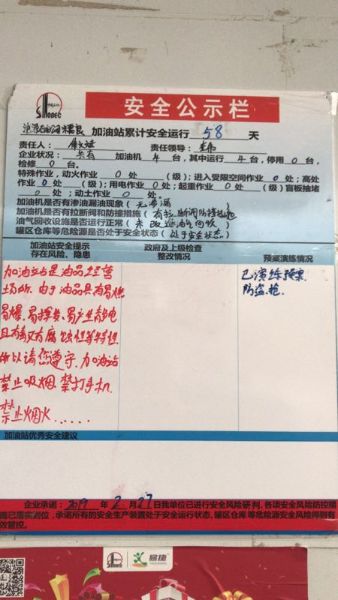 Sinopec
安全公示栏
加油站累计安全运行 58 天
责任人: 责任领导:
企业状况: 共有 加油机 4 台,其中运行 4 台,停用 0 台,
检修 0 台。
特殊作业,动火作业 0 处 (级);进入受限空间作业 0 处;高处
作业 0 处 (级);用电作业 0 处;起重作业 0 处 (级);盲板抽堵
0 处;动土作业 0 处。
加油机是否有渗油漏油现象(无渗漏)
加油机是否有拉断阀和防撞措施(有拉断阀防撞措施)
油气回收设施是否运行正常(
罐区仓库等危险源是否处于安全状态(处于安全状态)
加油站安全提示 政府及上级检查 预案演练情况
存在风险、隐患 整改情况
加油站是油品经营
场所,由于油品具有易燃
易爆、易挥发、易产生静电
且有 腐蚀性等特性
所以请您遵守加油站
禁止吸烟 禁打手机
禁止烟火......
已演练预案
防盗抢
加油站优秀安全建议
企业承诺:2019年2月27日我单位已进行安全风险研判,各项安全风险防控措
施已落实到位,承诺所有的安全生产装置处于安全运行状态,罐区仓库等危险源安全风险得到有
效管控。
易捷